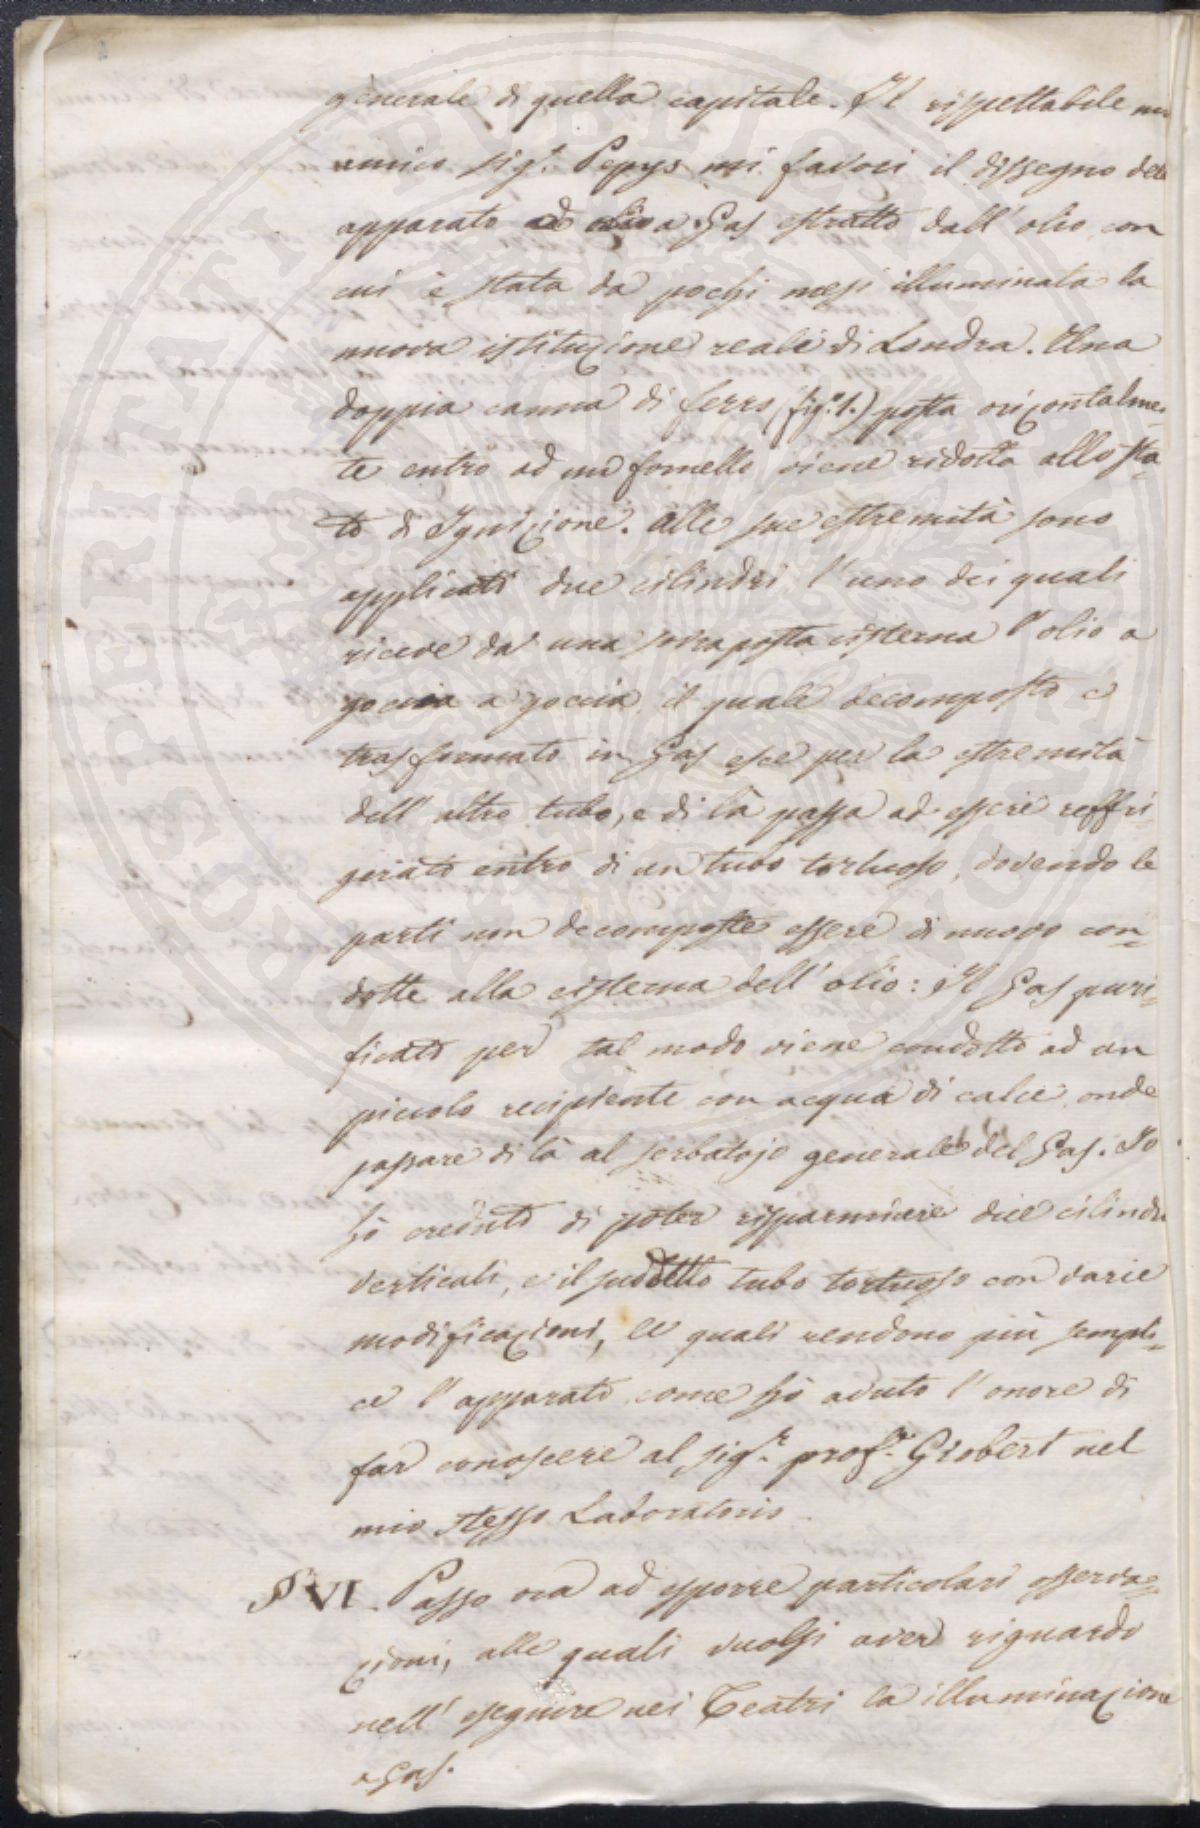 generale di quella capitale. Il rispettabile mio
amico sig.r Pepys mi favorì il dissegno dell
apparato a Gas estratto dall' olio con
cui è stata da pochi mesi illuminata la
nuova istituzione reale di Londra. Una
doppia canna di ferro (fig.a 1.) posta orizontalmen-
te entro ad un fornello viene ridotta allo sta-
to di Ignizione. Alle sue estremità sono
applicati due cilindri, l'uno dei quali
riceve da una sovraposta cisterna l'olio a
goccia a goccia, il quale decomposto e
trasformato in Gas esce per la estremità
dell' altro tubo, e di là passa ad essere reffri-
gerato entro di un tubo tortuoso, dovendo le
parti non decomposte essere di nuovo con-
dotte alla cisterna dell' olio: Il Gas puri-
ficato per tal modo viene condotto ad un
piccolo recipiente con acqua di calce, onde
passare di là al serbatojo generale del Gas. Io
hò creduto di poter risparmiare due cilindri
verticali, e il suddetto tubo tortuoso con varie
modificazioni, le quali rendono più sempli-
ce l'apparato come hò avuto l'onore di
far conoscere al sig.r prof.r Giobert nel
mio stesso Laboratorio.
§ VI. Passo ora ad esporre particolari osserva-
zioni, alle quali vuolsi aver riguardo
nell' eseguire nei Teatri la illuminazione
a Gas.
PROSPERITATI PUBLICAE AUGENDAE